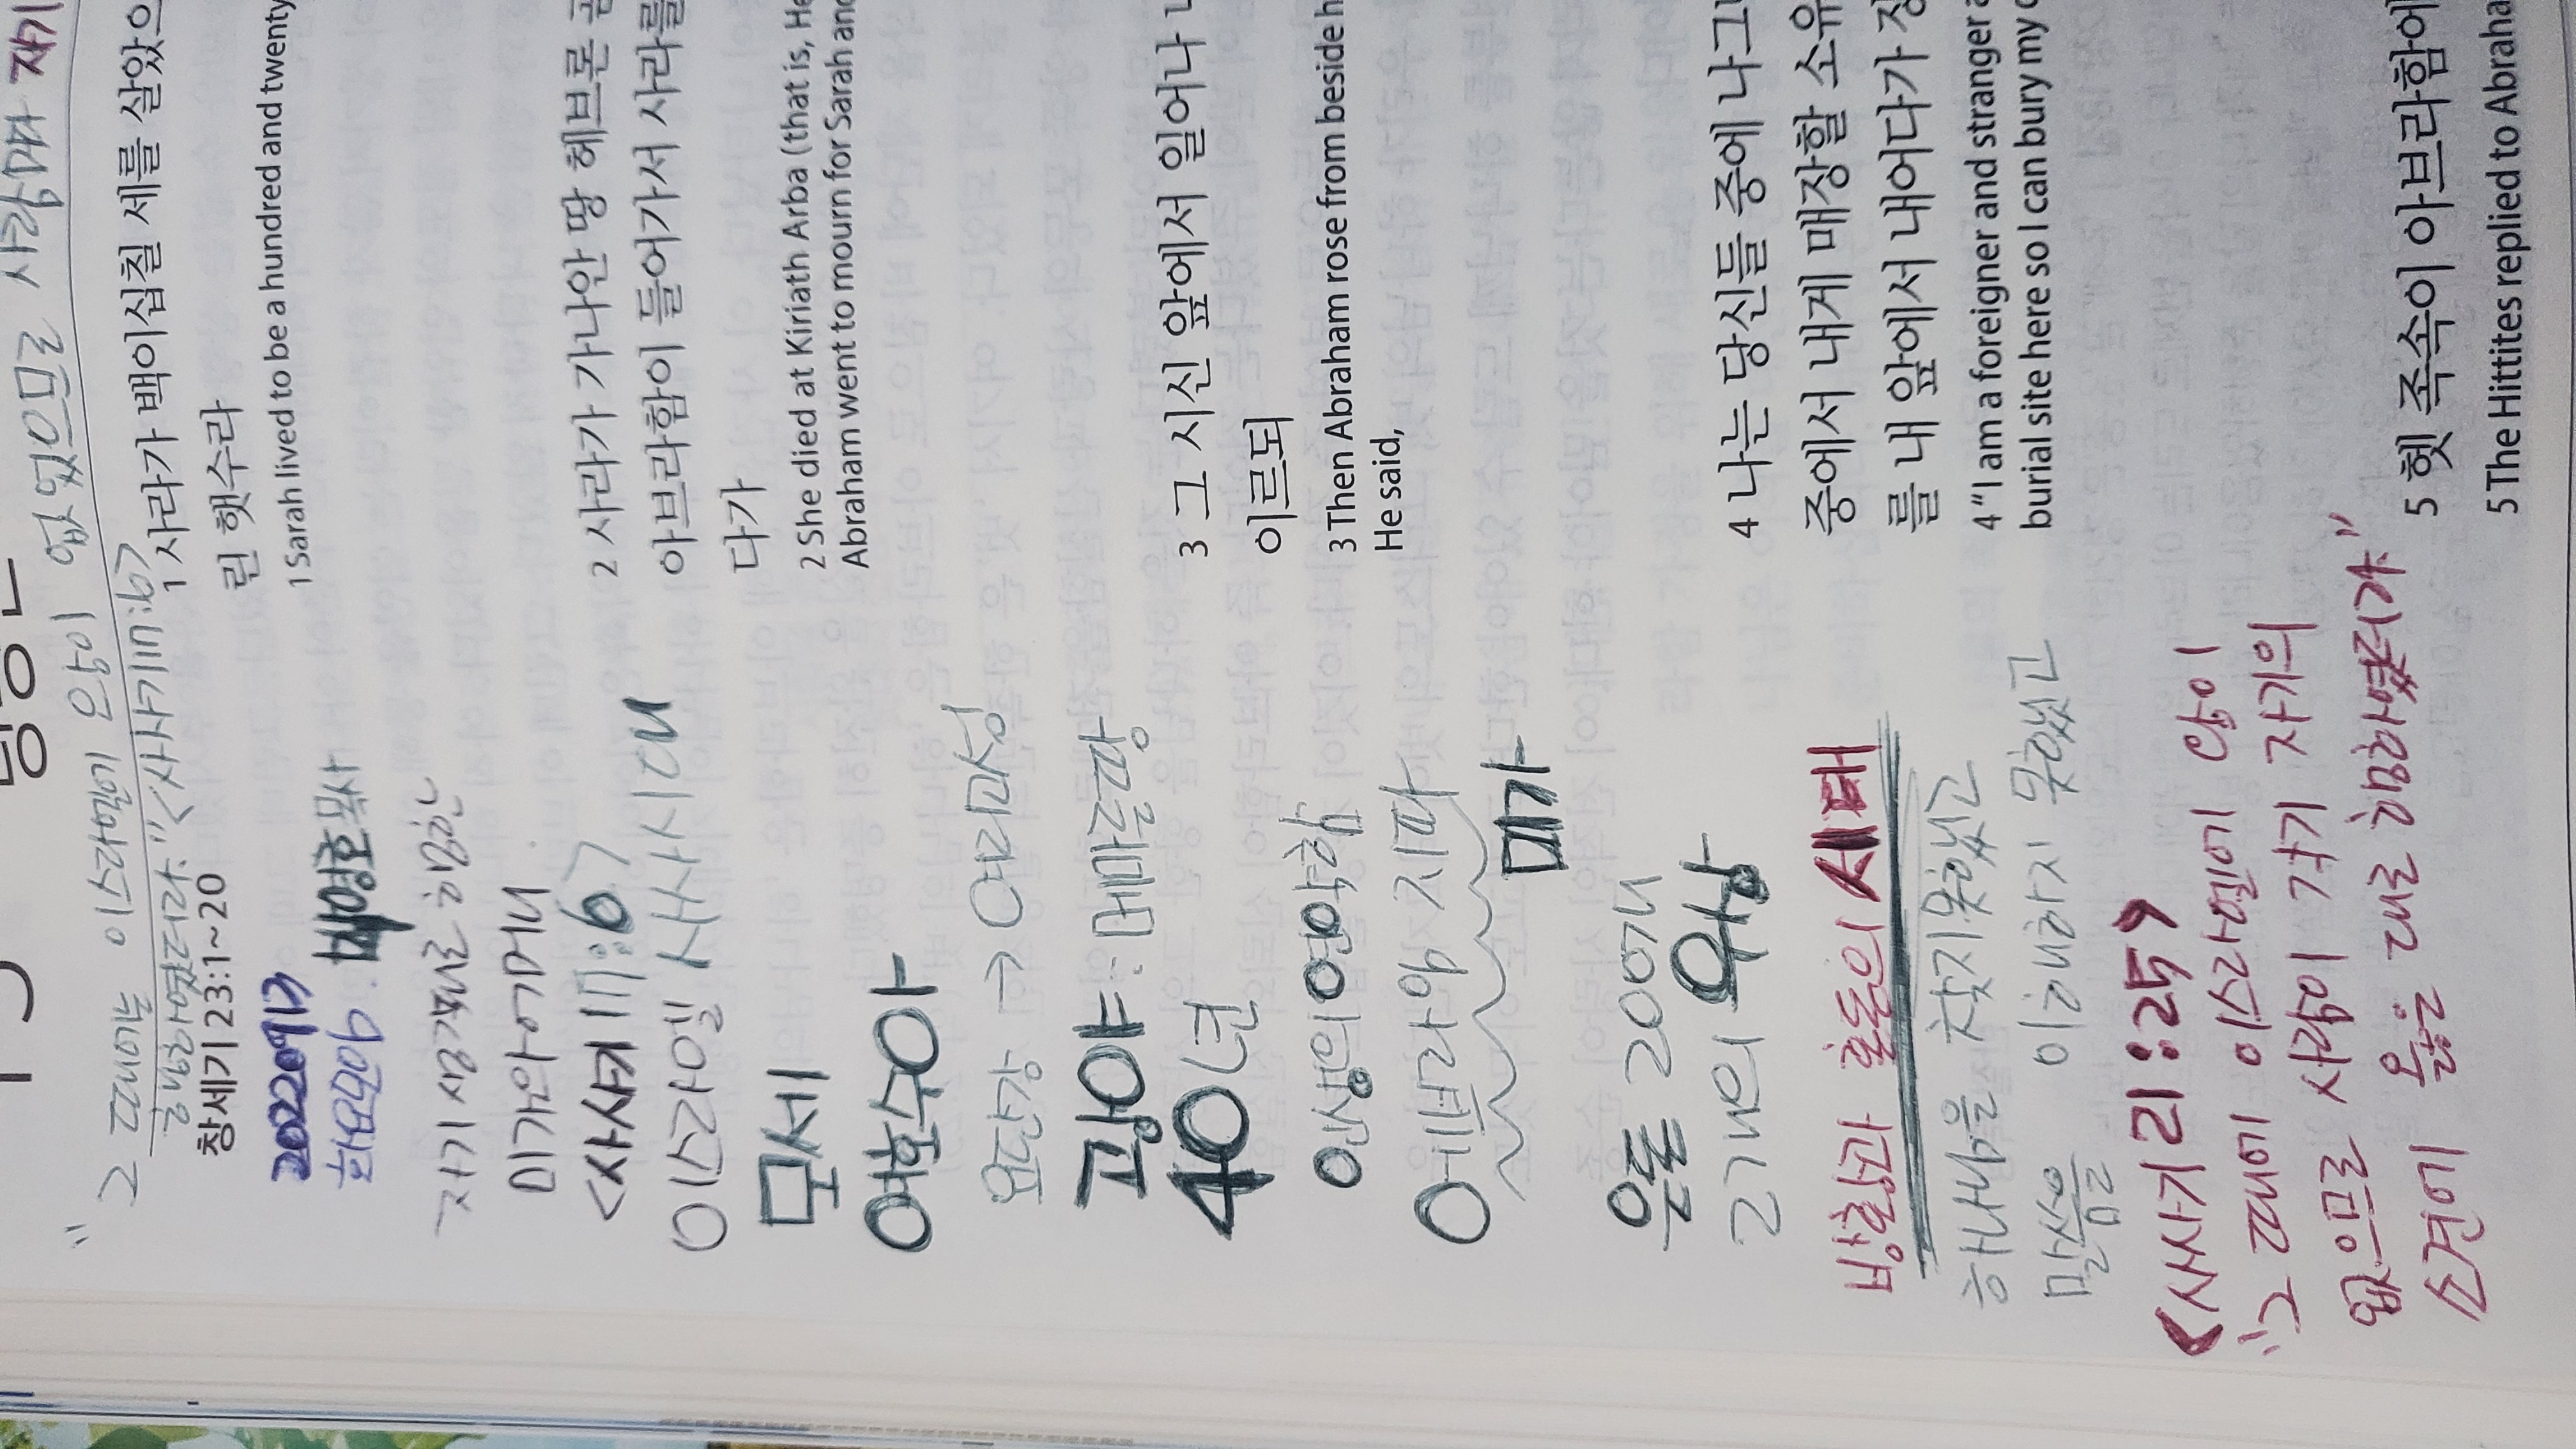 "그 때에는 이스라엘에 왕이 없었으므로 사람마다 자기
행하였더라."<사사기17:6>
창세기 23:1~20
1 사라가 백이십칠 세를 살았으
린 햇수라
1 Sarah lived to be a hundred and twenty
20220913
화요일
목사
자기 생각대로 행한
미가와 어머니
<사사기 17:6>
이스라엘 사사시대
모세
여호수아
요단강 → 여리고성
광야: 메마른땅
40년
인생의 연약함
에브라임 지파
미가
은돈 200개
2개의 우상
방황과 혼돈의 세대
하나님을 찾지못했고
말씀을 이해하지 못했고
<사사기 21:25>
"그 때에 이스라엘에 왕이
없으므로 사람이 각기 자기의
소견에 옳은 대로 행하였더라"
2 사라가 가나안 땅 헤브론 곧
아브라함이 들어가서 사라를
다가
2 She died at Kiriath Arba (that is, He
Abraham went to mourn for Sarah and
3 그 시신 앞에서 일어나 나
이르되
3 Then Abraham rose from beside h
He said,
4 나는 당신들 중에 나그
중에서 내게 매장할 소유
를 내 앞에서 내어다가 장
4 "I am a foreigner and stranger a
burial site here so I can bury my d
5 헷 족속이 아브라함에
5 The Hittites replied to Abraha